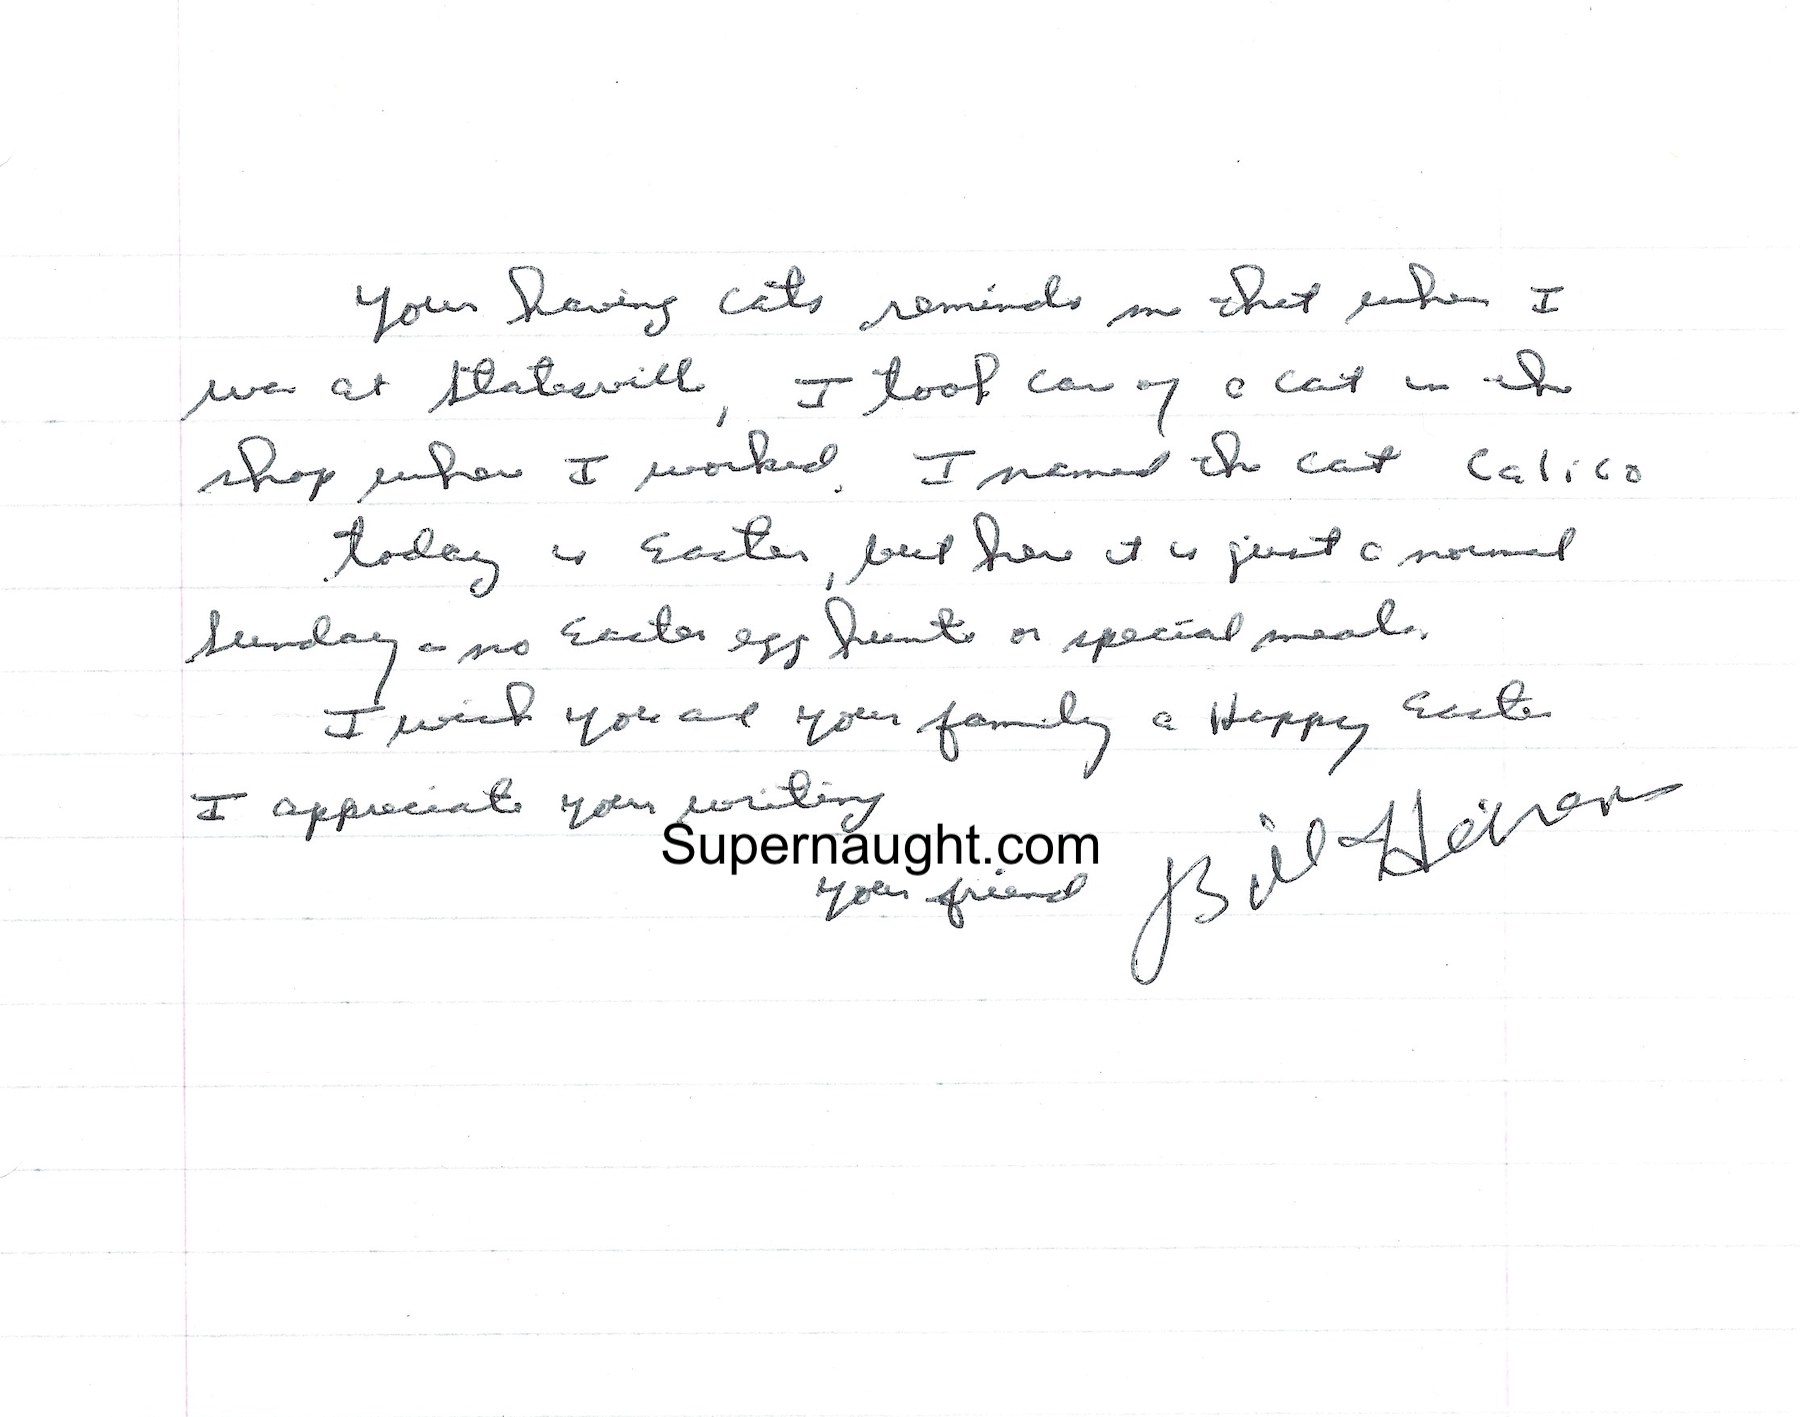 Your having cats reminds me that when I
was at Stateville, I took care of a cat in the
shop where I worked. I named the cat Calico
Today is Easter, but here it is just a normal
Sunday - no Easter egg hunts or special meals.
I wish you and your family a Happy Easter
I appreciate your writing
Supernaught.com
your friend Bill Heirens